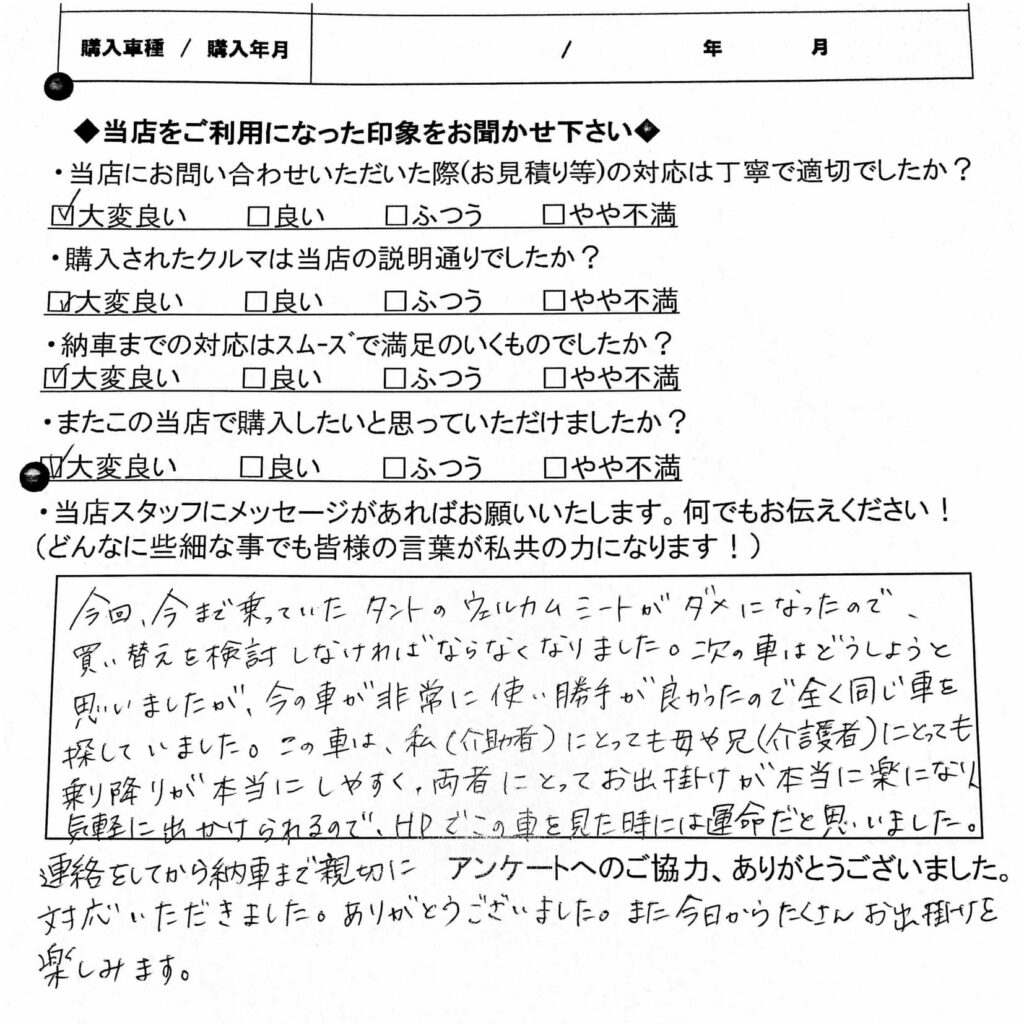 購入車種 / 購入年月 / 年 月
◆当店をご利用になった印象をお聞かせ下さい◆
・当店にお問い合わせいただいた際(お見積り等)の対応は丁寧で適切でしたか？
☑大変良い □良い □ふつう □やや不満
・購入されたクルマは当店の説明通りでしたか？
☑大変良い □良い □ふつう □やや不満
・納車までの対応はスムーズで満足のいくものでしたか？
☑大変良い □良い □ふつう □やや不満
・またこの当店で購入したいと思っていただけましたか？
☑大変良い □良い □ふつう □やや不満
・当店スタッフにメッセージがあればお願いいたします。何でもお伝えください！
（どんなに些細な事でも皆様の言葉が私共の力になります！）
今回、今まで乗っていたタントのウェルカムミートがダメになったので、
買い替えを検討しなければならなくなりました。次の車はどうしようと
思いましたが、今の車が非常に使い勝手が良かったので全く同じ車を
探していました。この車は、私（介助者）にとっても母や兄（介護者）にとっても
乗り降りが本当にしやすく、両者にとってお出掛けが本当に楽になり
気軽に出かけられるので、HPでこの車を見た時には運命だと思いました。
連絡をしてから納車まで親切に アンケートへのご協力、ありがとうございました。
対応いただきました。ありがとうございました。また今日からたくさんお出掛けを
楽しみます。